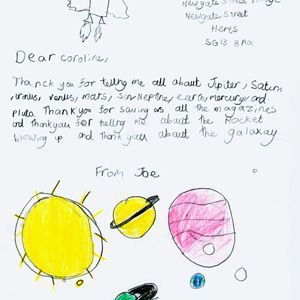 Newgate Street Village
Newgate Street
Herts
SG13 8RA
Dear coroline,
Thanck you for telling me all about Jupiter, Saturn
,uranus, venus, mars, sun, Neptne, earth, mercury and
pluto. Thankyou for saving us all the magazines
and thankyou for telling me about the Rocket
blowing up and thank you about the galaxay
From Joe